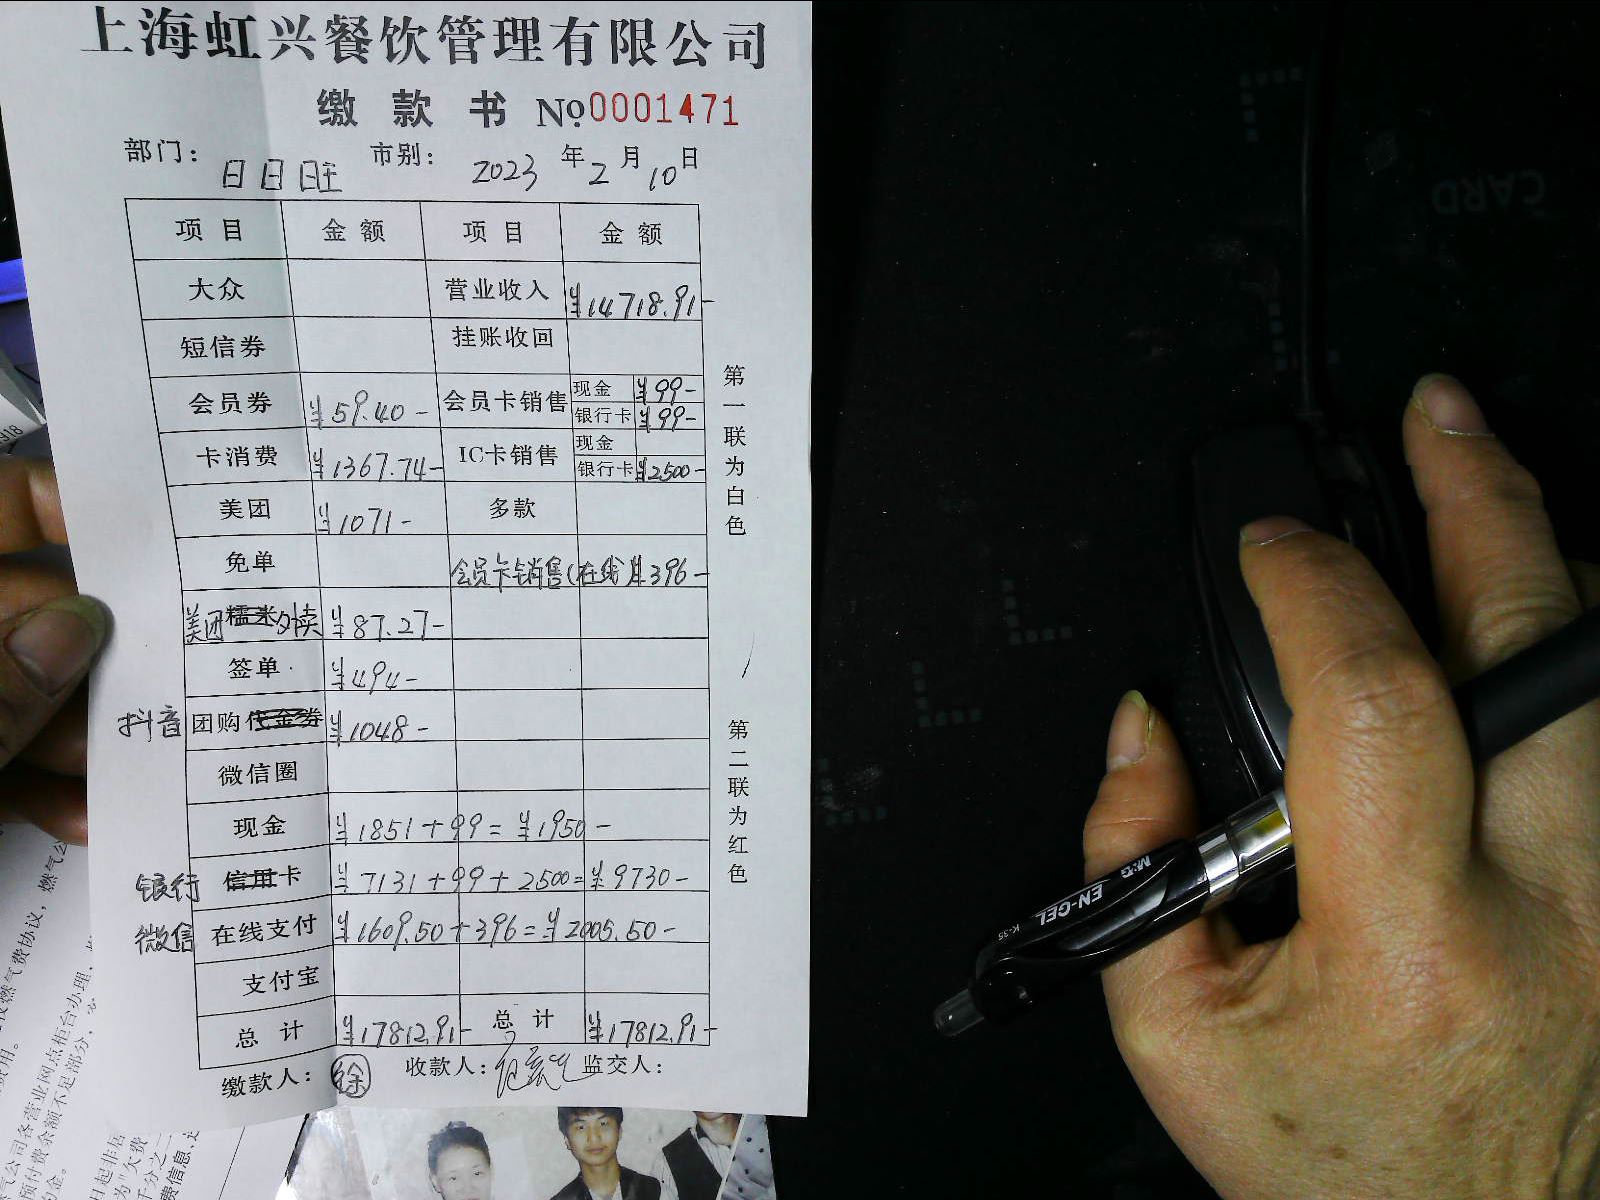 上海虹兴餐饮管理有限公司
缴款书 No 0001471
部门: 日日旺 市别: 2023年2月10日
项目 金额 项目 金额
大众 营业收入 ¥14718.91-
短信券 挂账收回
会员券 ¥59.40- 会员卡销售 现金 ¥99-
银行卡 ¥99-
卡消费 ¥1367.74- IC卡销售 现金
银行卡 ¥2500-
美团 ¥1071- 多款
免单 会员卡销售(在线) ¥396-
美团糯米外卖 ¥87.27-
签单 ¥494-
抖音 团购代金券 ¥1048-
微信圈
现金 ¥1851+99=¥1950-
银行 信用卡 ¥7131+99+2500=¥9730-
微信 在线支付 ¥1609.50+396=¥2005.50-
支付宝
总计 ¥17812.91- 总计 ¥17812.91-
缴款人: 徐 收款人: 监交人:
第一联为白色
第二联为红色
CARD
M&G EN-GEL K-35
918